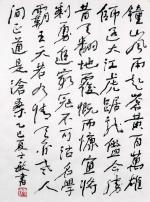 鐘山風雨起蒼黄百萬雄
師過大江虎踞龍盤今勝
昔天翻地覆慨而慷宜將
剩勇追窮寇不可沽名學
霸王天若有情天亦老人
间正道是滄桑乙巳夏書